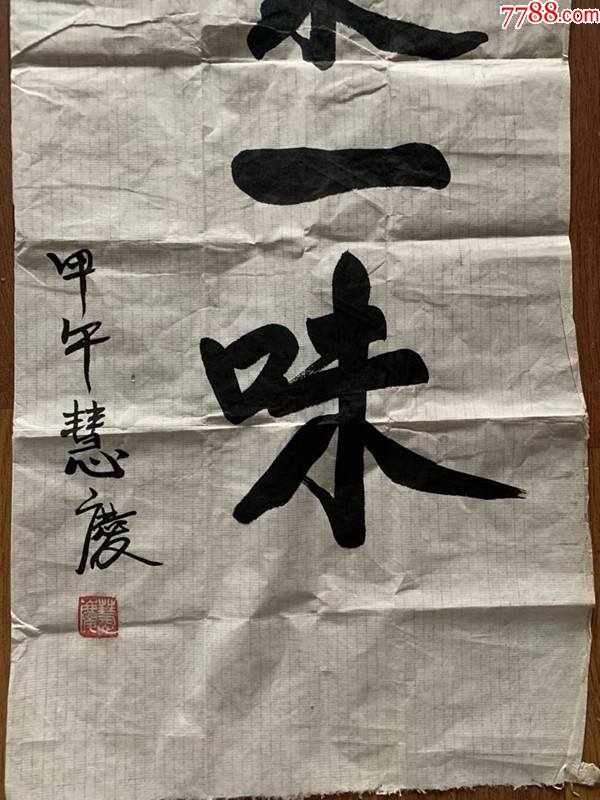 7788.com
茶一味
甲午慧慶
慧慶